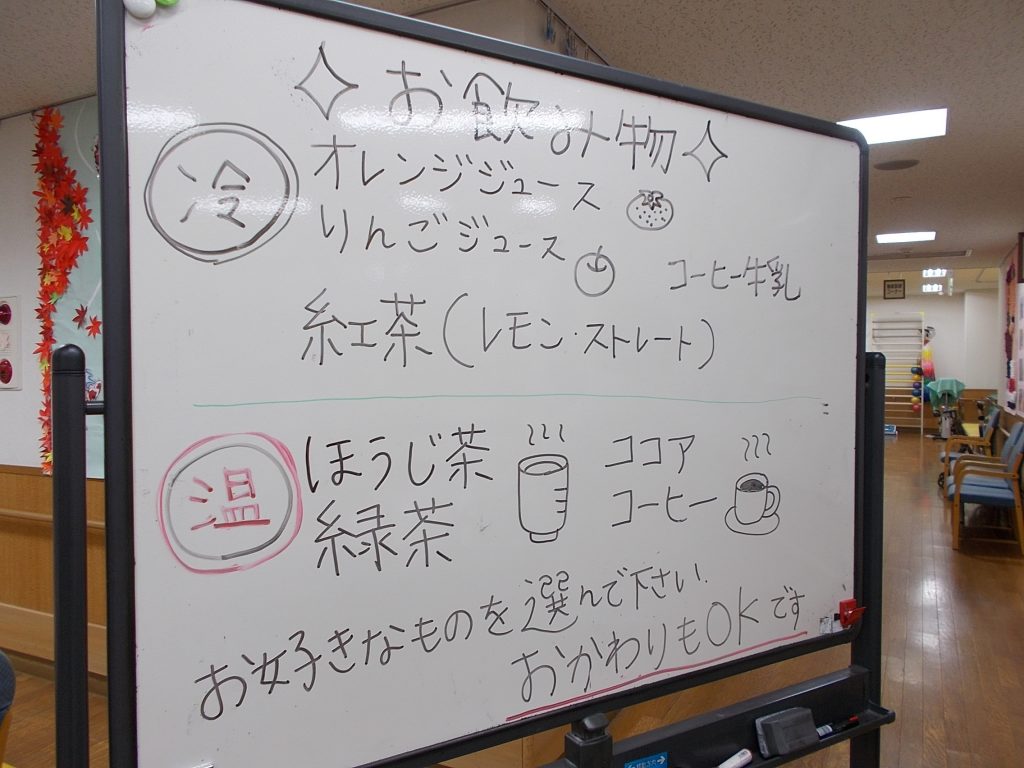 お飲み物
冷
オレンジジュース
りんごジュース
コーヒー牛乳
紅茶(レモン・ストレート)
温
ほうじ茶
緑茶
ココア
コーヒー
お好きなものを選んで下さい.
おかわりもOKです